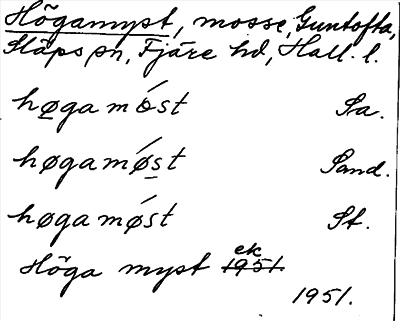 Högamyst, mosse, Guntofta,
Släps sn, Fjäre hd, Hall. l.
høgamǿst Sa.
høgamǿst Sand.
høgamǿst St.
Höga myst ek 1951.
1951.